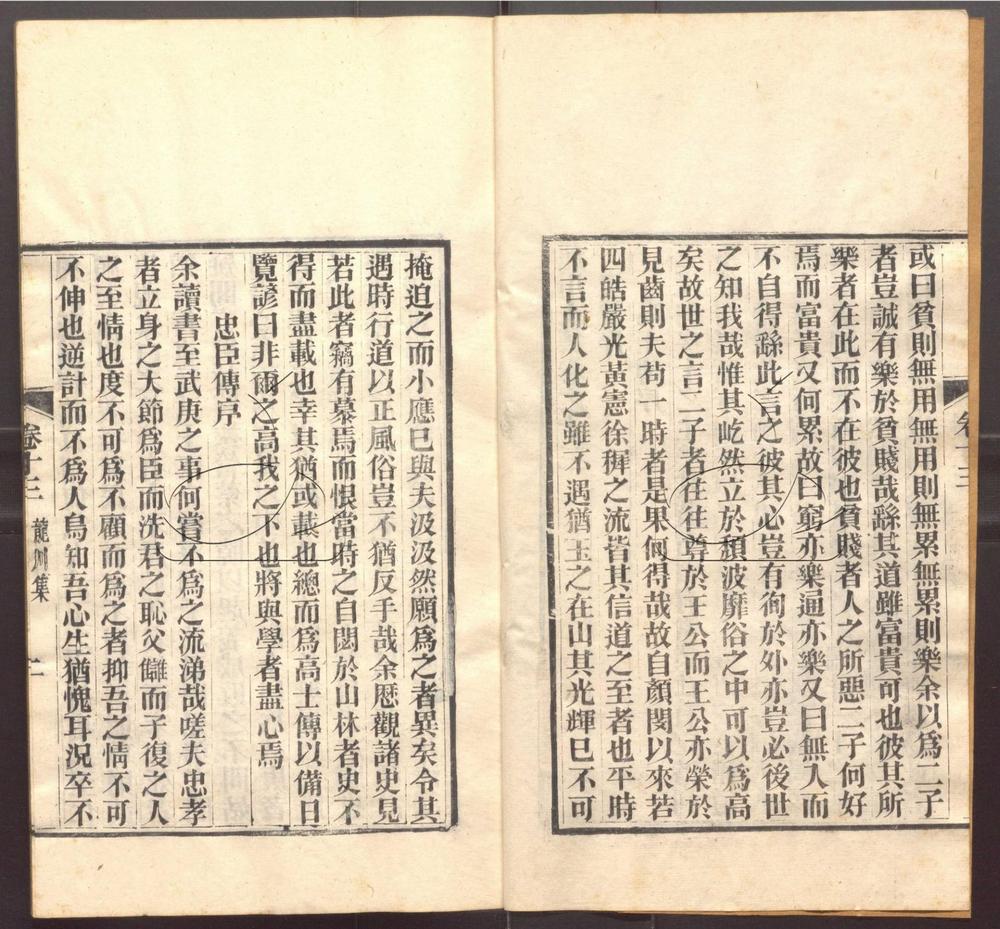 或曰貧則無用無用則無累無累則樂余以爲二子
者豈誠有樂於貧賤哉繇其道雖富貴可也彼其所
樂者在此而不在彼也貧賤者人之所惡二子何好
焉而富貴又何累故曰窮亦樂通亦樂又曰無入而
不自得繇此言之彼其心豈有徇於外亦豈必後世
之知我哉惟其屹然立於頹波靡俗之中可以爲高
矣故世之言二子者往往尊於王公而王公亦榮於
見齒則夫苟一時者是果何得哉故自顏閔以來若
四皓嚴光黃憲徐穉之流皆其信道之至者也平時
不言而人化之雖不遇猶玉之在山其光輝已不可
卷十三
掩迫之而小應已與夫汲汲然願爲之者異矣令其
遇時行道以正風俗豈不猶反手哉余歷觀諸史見
若此者竊有慕焉而恨當時之自閟於山林者史不
得而盡載也幸其猶或載也總而爲高士傳以備日
覽諺曰非爾之高我之不也將與學者盡心焉
忠臣傳序
余讀書至武庚之事何嘗不爲之流涕哉嗟夫忠孝
者立身之大節爲臣而洗君之恥父讎而子復之人
之至情也度不可爲不顧而爲之者抑吾之情不可
不伸也逆計而不爲人烏知吾心生猶愧耳況卒不
卷十三 龍川集 二